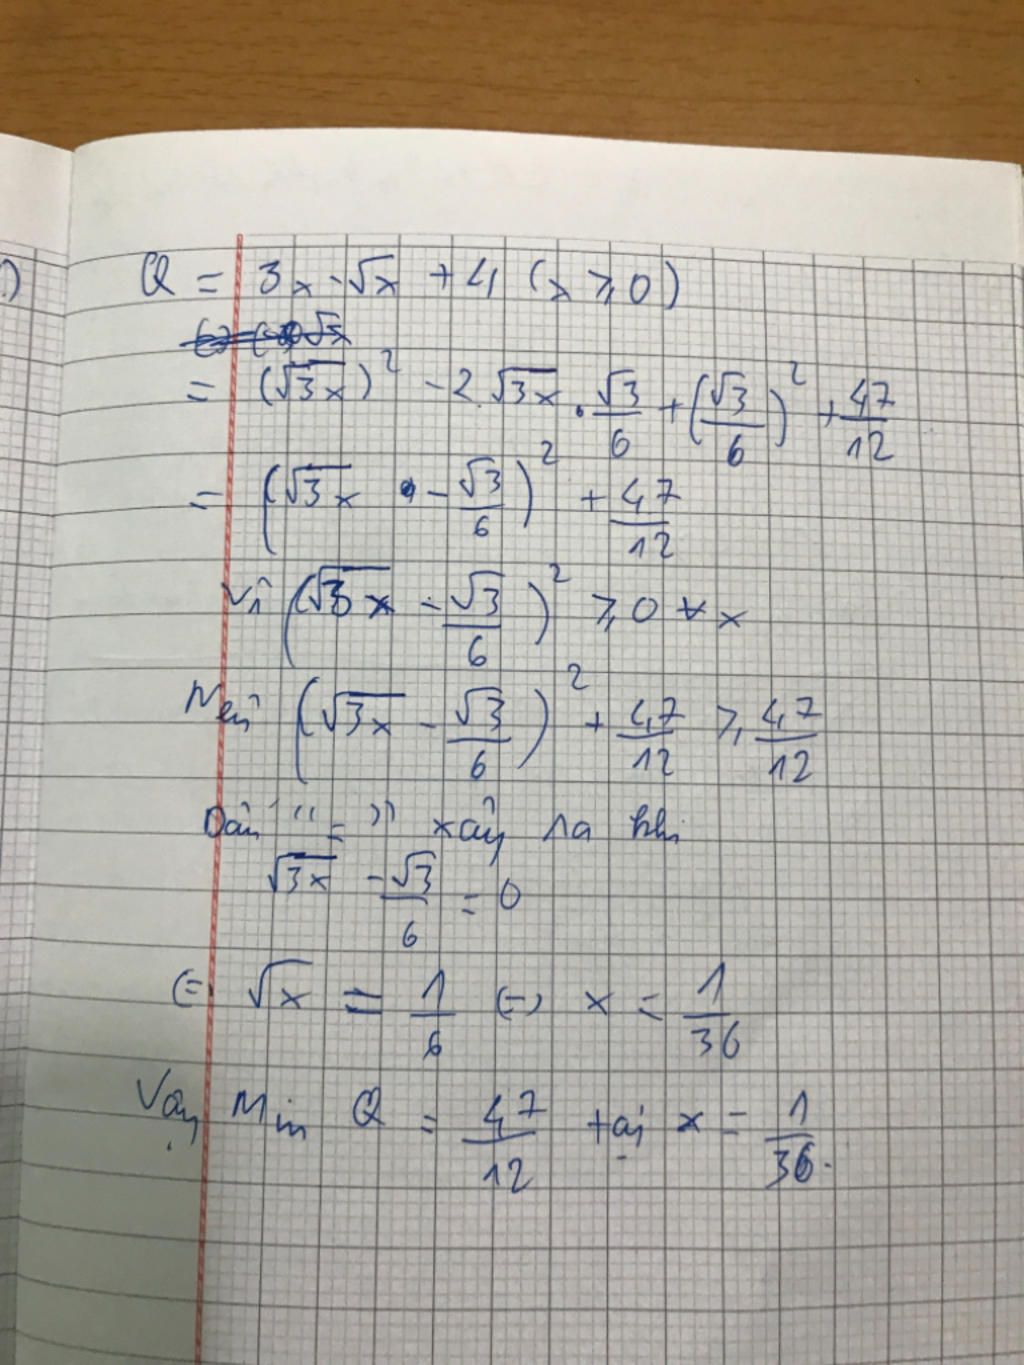 Q = 3x - √x + 4 (x ≥ 0)
= (√3x)² - 2.√3x . √3/6 + (√3/6)² + 47/12
= (√3x - √3/6)² + 47/12
Vì (√3x - √3/6)² ≥ 0 ∀x
Nên (√3x - √3/6)² + 47/12 ≥ 47/12
Dấu "=" xảy ra khi
√3x - √3/6 = 0
(=) √x = 1/6 (=) x = 1/36
Vậy Min Q = 47/12 tại x = 1/36.